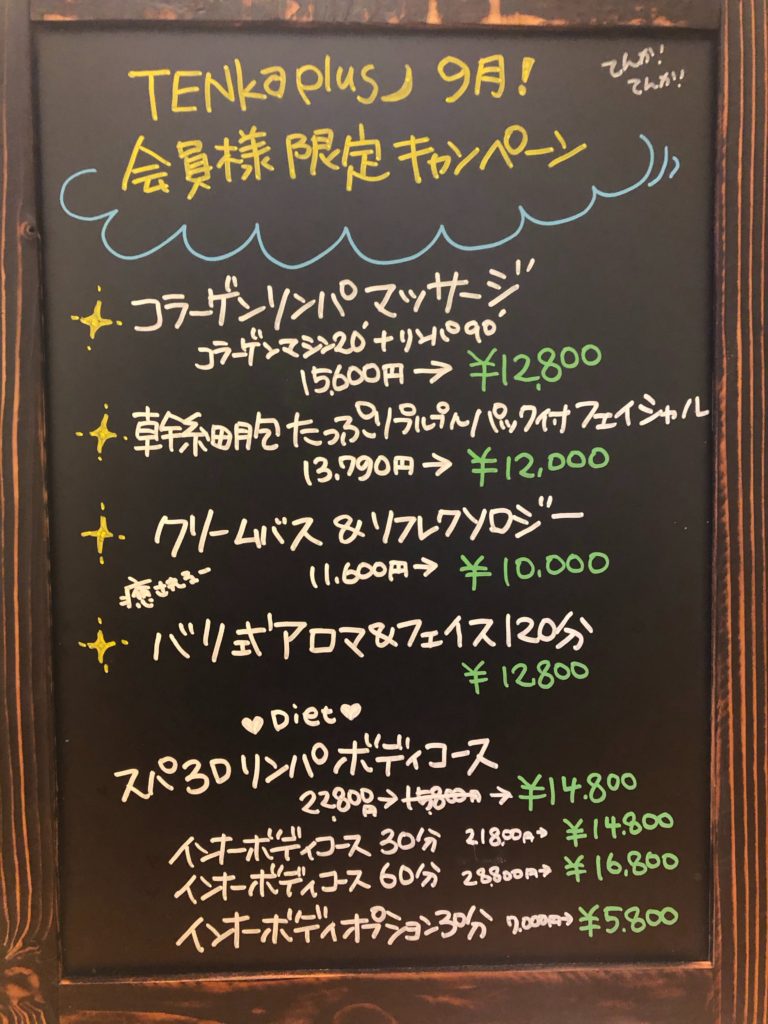 TENkaplus♪ 9月!
てんか!
てんか!
会員様 限定 キャンペーン
コラーゲンリンパマッサージ
コラーゲンマシン20'+リンパ90'
15,600円→ ¥12,800
幹細胞たっぷりプルプルパック付フェイシャル
13.790円→ ¥12,000
クリームバス&リフレクソロジー
11.600円→ ¥10,000
癒されるー
バリ式アロマ&フェイス120分
¥12.800
♥Diet♥
スパ3Dリンパボディコース
22,800円→15,800円→¥14.800
インオーボディコース 30分 21,800円→ ¥14.800
インオーボディコース 60分 28,800円→ ¥16,800
インオーボディオプション30分 7,000円→¥5.800